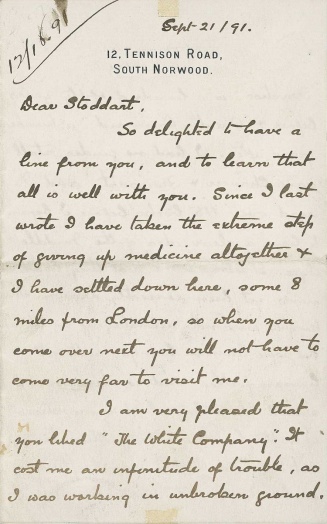 12/10 91
Sept 21/91.
12, TENNISON ROAD,
SOUTH NORWOOD.
Dear Stoddart,
So delighted to have a
line from you, and to learn that
all is well with you. Since I last
wrote I have taken the extreme step
of giving up medicine altogether &
I have settled down here, some 8
miles from London, so when you
come over next you will not have to
come very far to visit me.
I am very pleased that
you liked "The White Company". It
cost me an infinitude of trouble, as
I was working in unbroken ground.